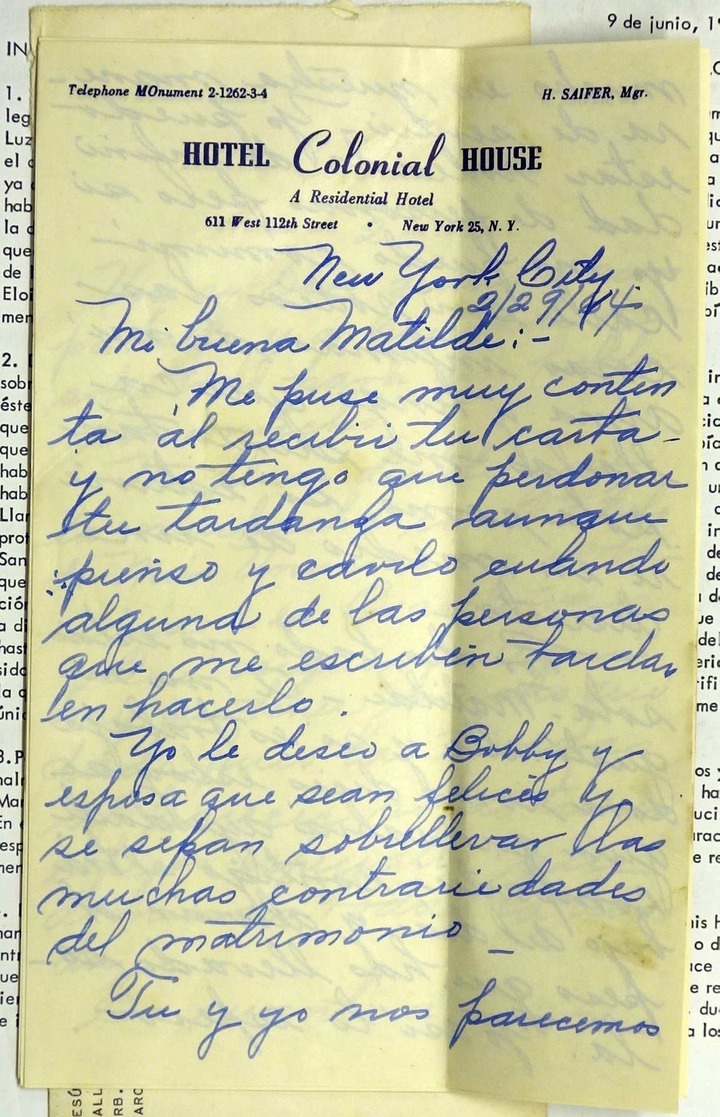 9 de junio, 1
Telephone MOnument 2-1262-3-4
H. SAIFER, Mgr.
HOTEL Colonial HOUSE
A Residential Hotel
611 West 112th Street • New York 25, N. Y.
New York City
2/29/64
Mi buena Matilde:-
Me puse muy conten
ta al recibir tu carta-
y no tengo que perdonar
tu tardanza aunque
pienso y cavilo cuando
alguna de las personas
que me escriben tardan
en hacerlo.
Yo le deseo a Bobby y
esposa que sean felices y
se sepan sobrellevar las
muchas contrariedades
del matrimonio-
Tu y yo nos parecemos